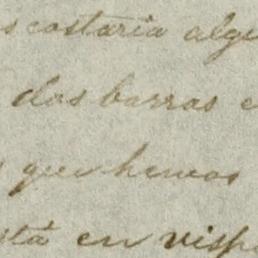 s costaria algu
dos barras e
que hemos
stá en vispe